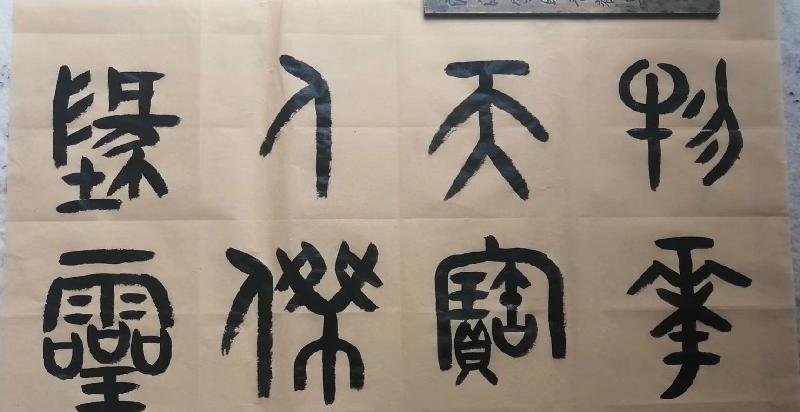 物華
天寶
人傑
墬靈